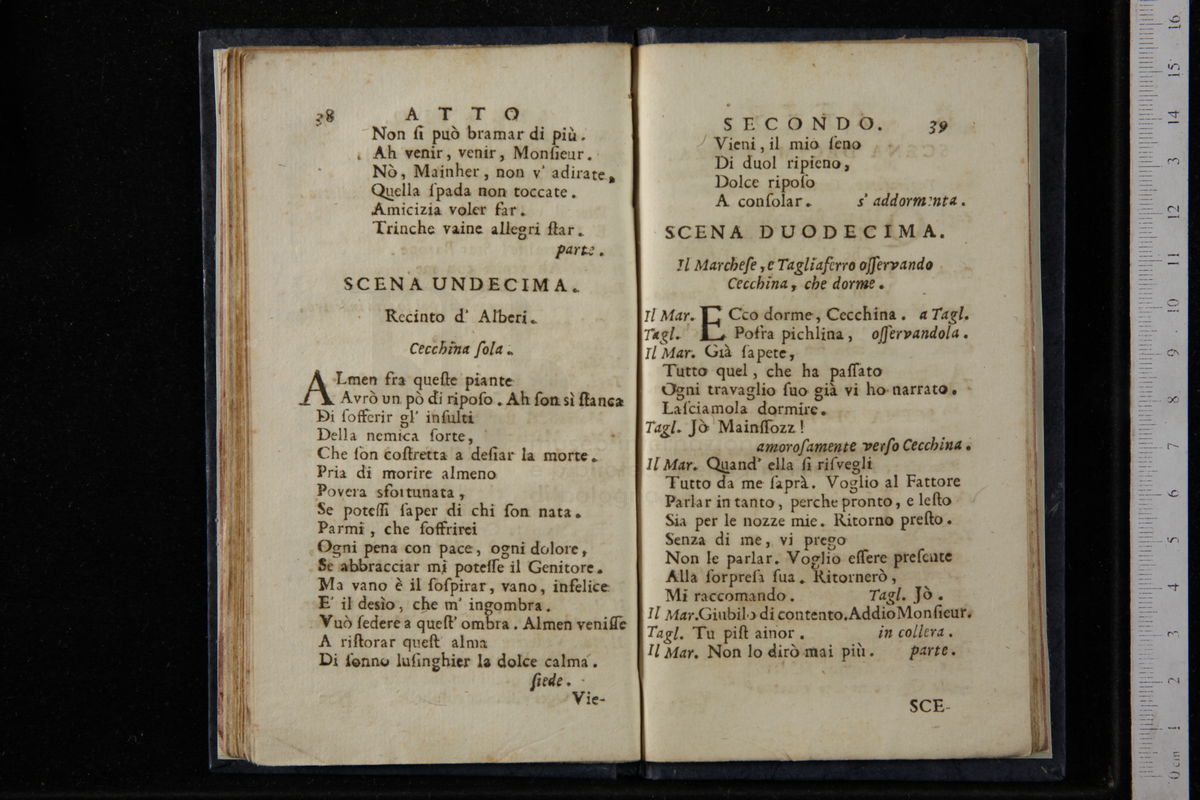 38 ATTO
Non ſi può bramar di più.
Ah venir, venir, Monſieur.
Nò, Mainher, non v' adirate,
Quella ſpada non toccate.
Amicizia voler far.
Trinche vaine allegri ſtar.
parte.
SCENA UNDECIMA.
Recinto d' Alberi.
Cecchina ſola.
ALmen fra queſte piante
Avrò un pò di ripoſo. Ah ſon sì ſtanca
Di ſofferir gl' inſulti
Della nemica ſorte,
Che ſon coſtretta a deſiar la morte.
Pria di morire almeno
Povera sfortunata,
Se poteſſi ſaper di chi ſon nata.
Parmi, che ſoffrirei
Ogni pena con pace, ogni dolore,
Se abbracciar mi poteſſe il Genitore.
Ma vano è il ſoſpirar, vano, infelice
E' il desìo, che m' ingombra.
Vuò ſedere a queſt' ombra. Almen veniſſe
A riſtorar queſt alma
Di ſonno luſinghier la dolce calma.
ſiede.
Vie-
SECONDO. 39
Vieni, il mio ſeno
Di duol ripieno,
Dolce ripoſo
A conſolar. s' addormenta.
SCENA DUODECIMA.
Il Marcheſe, e Tagliaferro oſſervando
Cecchina, che dorme.
Il Mar. ECco dorme, Cecchina. a Tagl.
Tagl. Poſra pichlina, oſſervandola.
Il Mar. Già ſapete,
Tutto quel, che ha paſſato
Ogni travaglio ſuo già vi ho narrato.
Laſciamola dormire.
Tagl. Jò Mainſſozz!
amoroſamente verſo Cecchina.
Il Mar. Quand' ella ſi riſvegli
Tutto da me ſaprà. Voglio al Fattore
Parlar in tanto, perche pronto, e leſto
Sia per le nozze mie. Ritorno preſto.
Senza di me, vi prego
Non le parlar. Voglio eſſere preſente
Alla ſorpreſa ſua. Ritornerò,
Mi raccomando. Tagl. Jò.
Il Mar. Giubilo di contento. Addio Monſieur.
Tagl. Tu piſt ainor. in collera.
Il Mar. Non lo dirò mai più. parte.
SCE-
0 cm 1 2 3 4 5 6 7 8 9 10 11 12 13 14 15 16